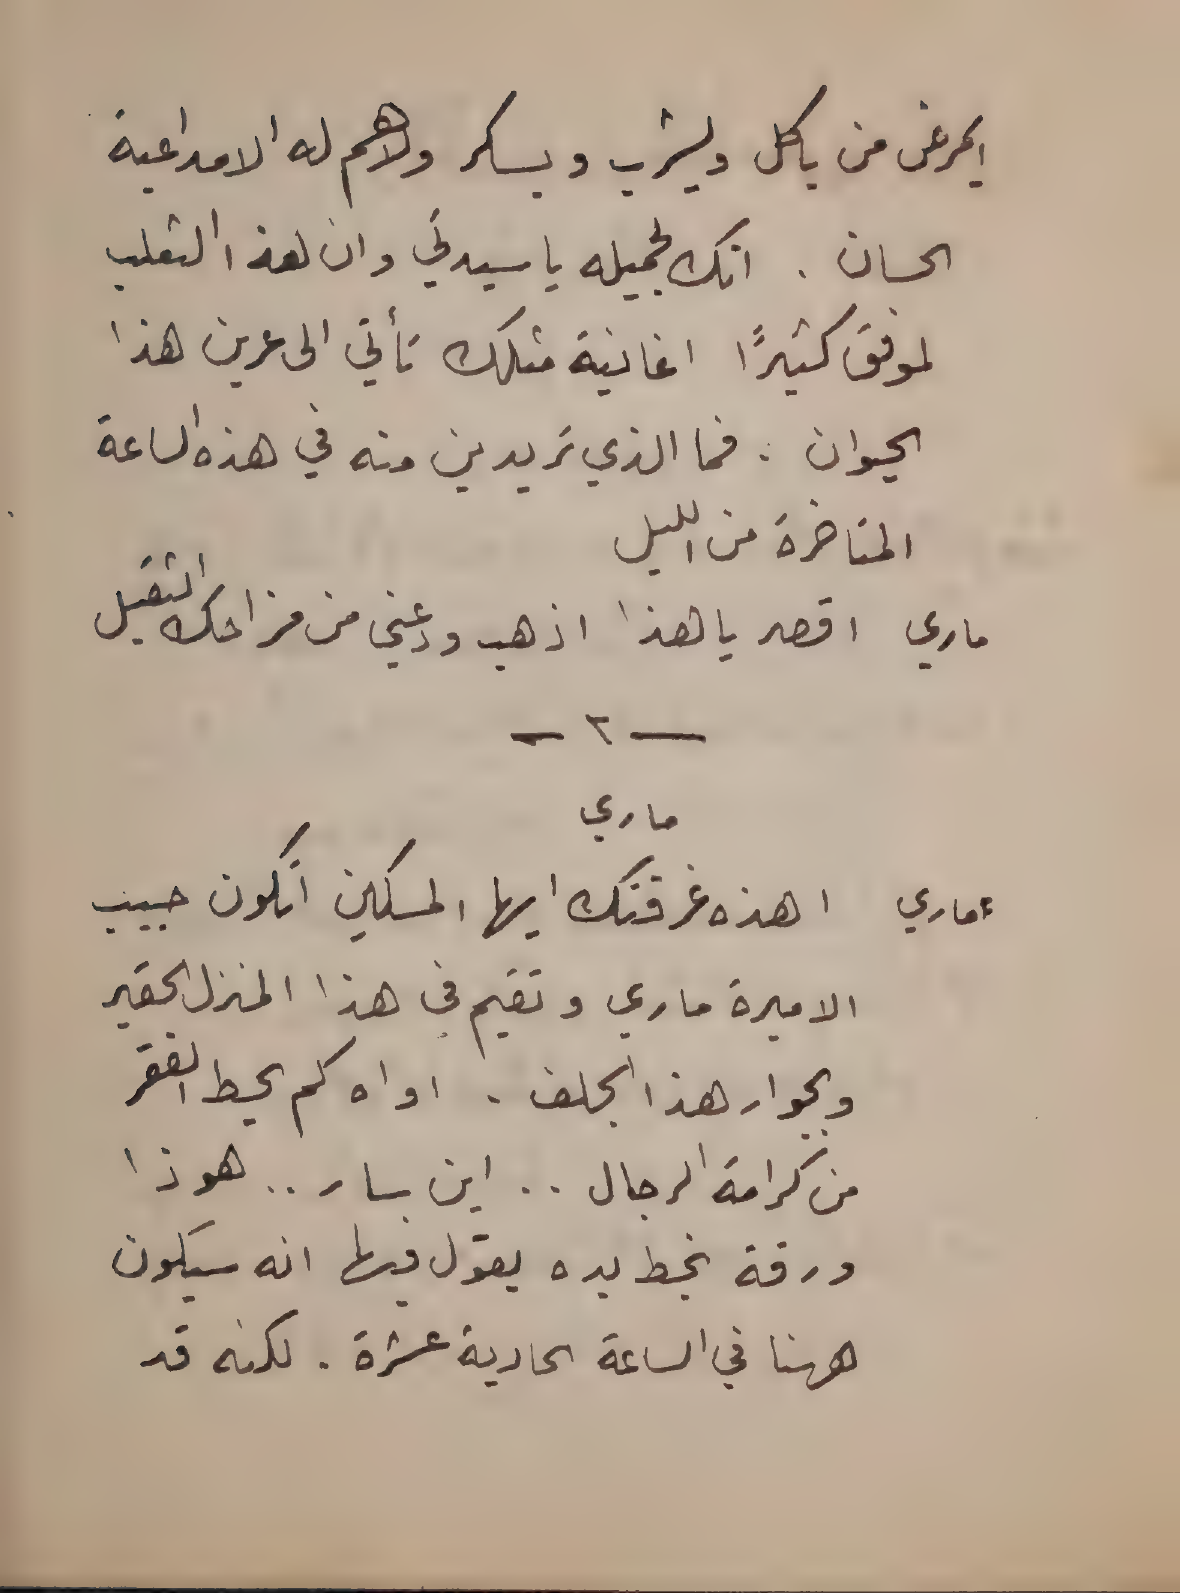 ايمرض من ياكل ويشرب ويسكر ولا هم له الا مداعبة
الحسان . انك لجميله يا سيدتي وان هذا الثعلب
لموفق كثيرًا اغانية مثلك تأتي الى عرين هذا
الحيوان . فما الذي تريدين منه في هذه الساعة
المتاخرة من الليل
ماري اقصر يا هذا اذهب ودعني من مزاحك الثقيل
— ٢ —
ماري
ماري اهذه غرفتك ايها المسكين اتكون حبيب
الاميرة ماري وتقيم في هذا المنزل الحقير
وبجوار هذا الجلف . اواه كم يحط الفقر
من كرامة الرجال .. اين سار .. هوذا
ورقة بخط يده يقول فيها انه سيكون
ههنا في الساعة الحادية عشرة . لكنه قد